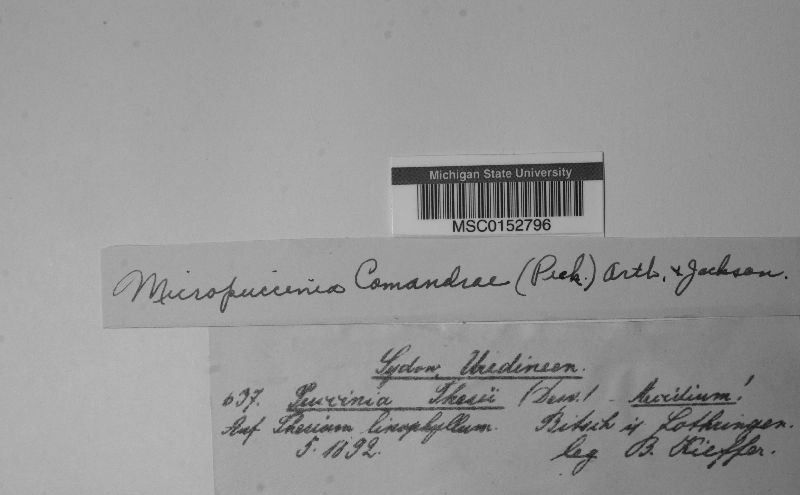 Michigan State University
MSC0152796
Micropuccinia Comandrae (Peck.) Arth. & Jackson.
Sydow, Uredineen.
637. Puccinia Thesii (Desv.) - Aecidium!
Auf Thesium linophyllum. Bitsch i/ Lothringen.
5. 1892. leg B. Kieffer.